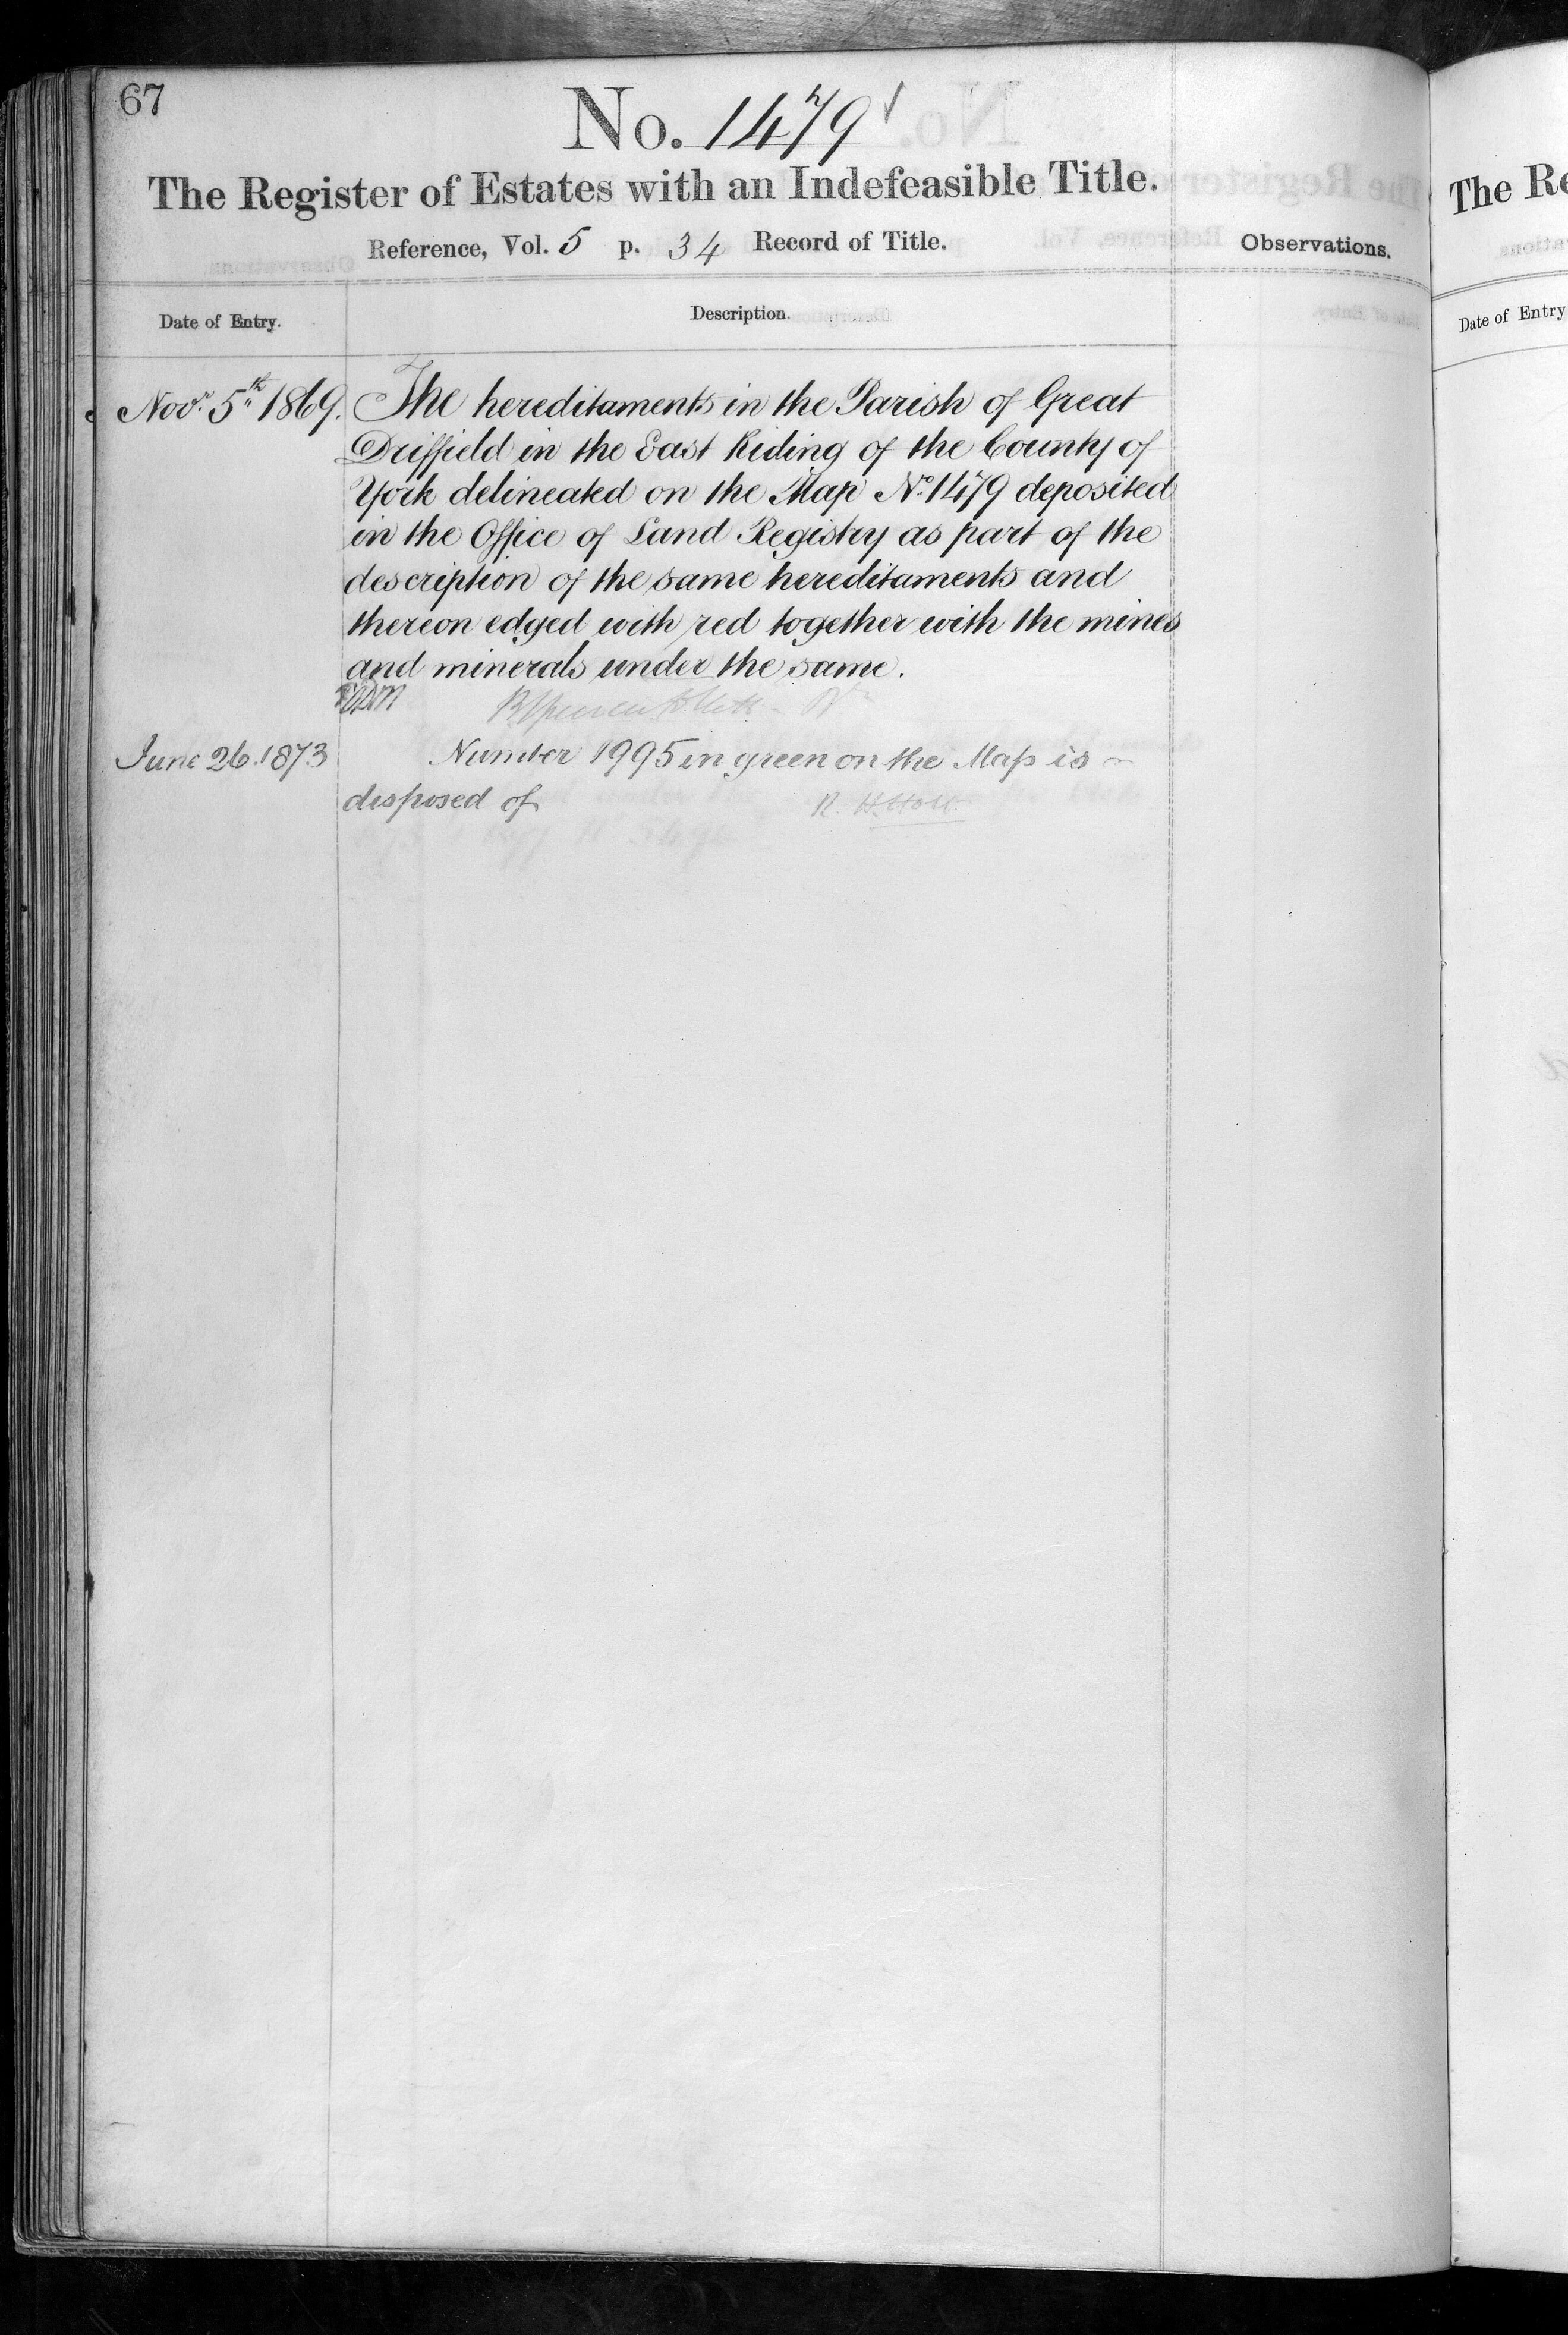 67
No. 1479
The Register of Estates with an Indefeasible Title.
Reference, Vol. 5 p. 34 Record of Title.
Observations.
Date of Entry.
Description.
Novr. 5th 1869.
The hereditaments in the Parish of Great
Driffield in the East Riding of the County of
York delineated on the Map No. 1479 deposited
in the Office of Land Registry as part of the
description of the same hereditaments and
thereon edged with red together with the mines
and minerals under the same.
June 26. 1873
Number 1995 in green on the Map is
disposed of
R. H. Holt
The Re
Date of Entry